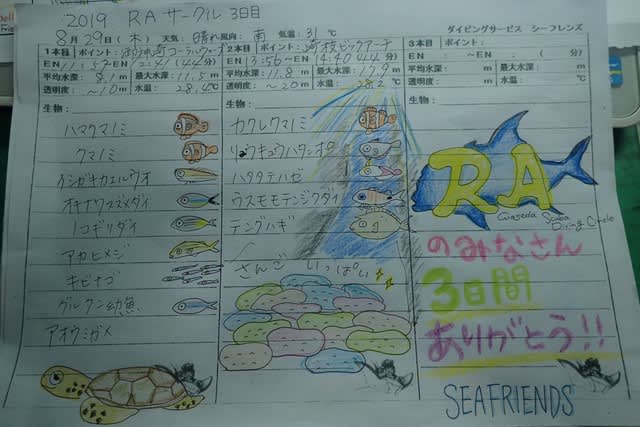 2019 RAサークル 3日目
8月29日(木) 天気: 晴れ 風向: 南 気温: 31℃
ダイビングサービス シーフレンズ
1本目 ポイント:
EN 11:57~12:41 (44分)
平均水深: m 最大水深: 11.5m
透明度: ~10m 水温: 28.4℃
生物:
ハマクマノミ
クマノミ
イシガキカエルウオ
オキナワスズメダイ
ノコギリダイ
アカヒメジ
キビナゴ
グルクン幼魚
アオウミガメ
2本目 ポイント: 崎枝ビッグアーチ
EN 13:56~EN 14:40 (44分)
平均水深: 11.8m 最大水深: 17.9m
透明度: ~20m 水温: 28.2℃
生物:
カクレクマノミ
リュウキュウハタンポ
ハタタテハゼ
ウスモモテンジクダイ
テングハギ
さんご いっぱい
3本目 ポイント:
EN : ~EN : ( 分)
平均水深: m 最大水深: m
透明度: m 水温: ℃
生物:
RA
Waseda Scuba
Diving Circle
のみなさん
3日間
ありがとう!!
SEAFRIENDS